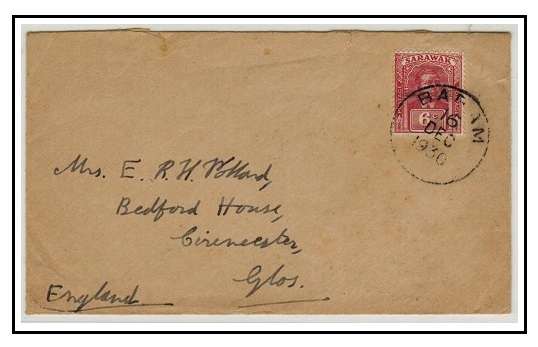 SARAWAK
6
BARAM
16
DEC
1930
Mrs. E. R. H. Pollard,
Bedford House,
Cirencester,
Glos.
England